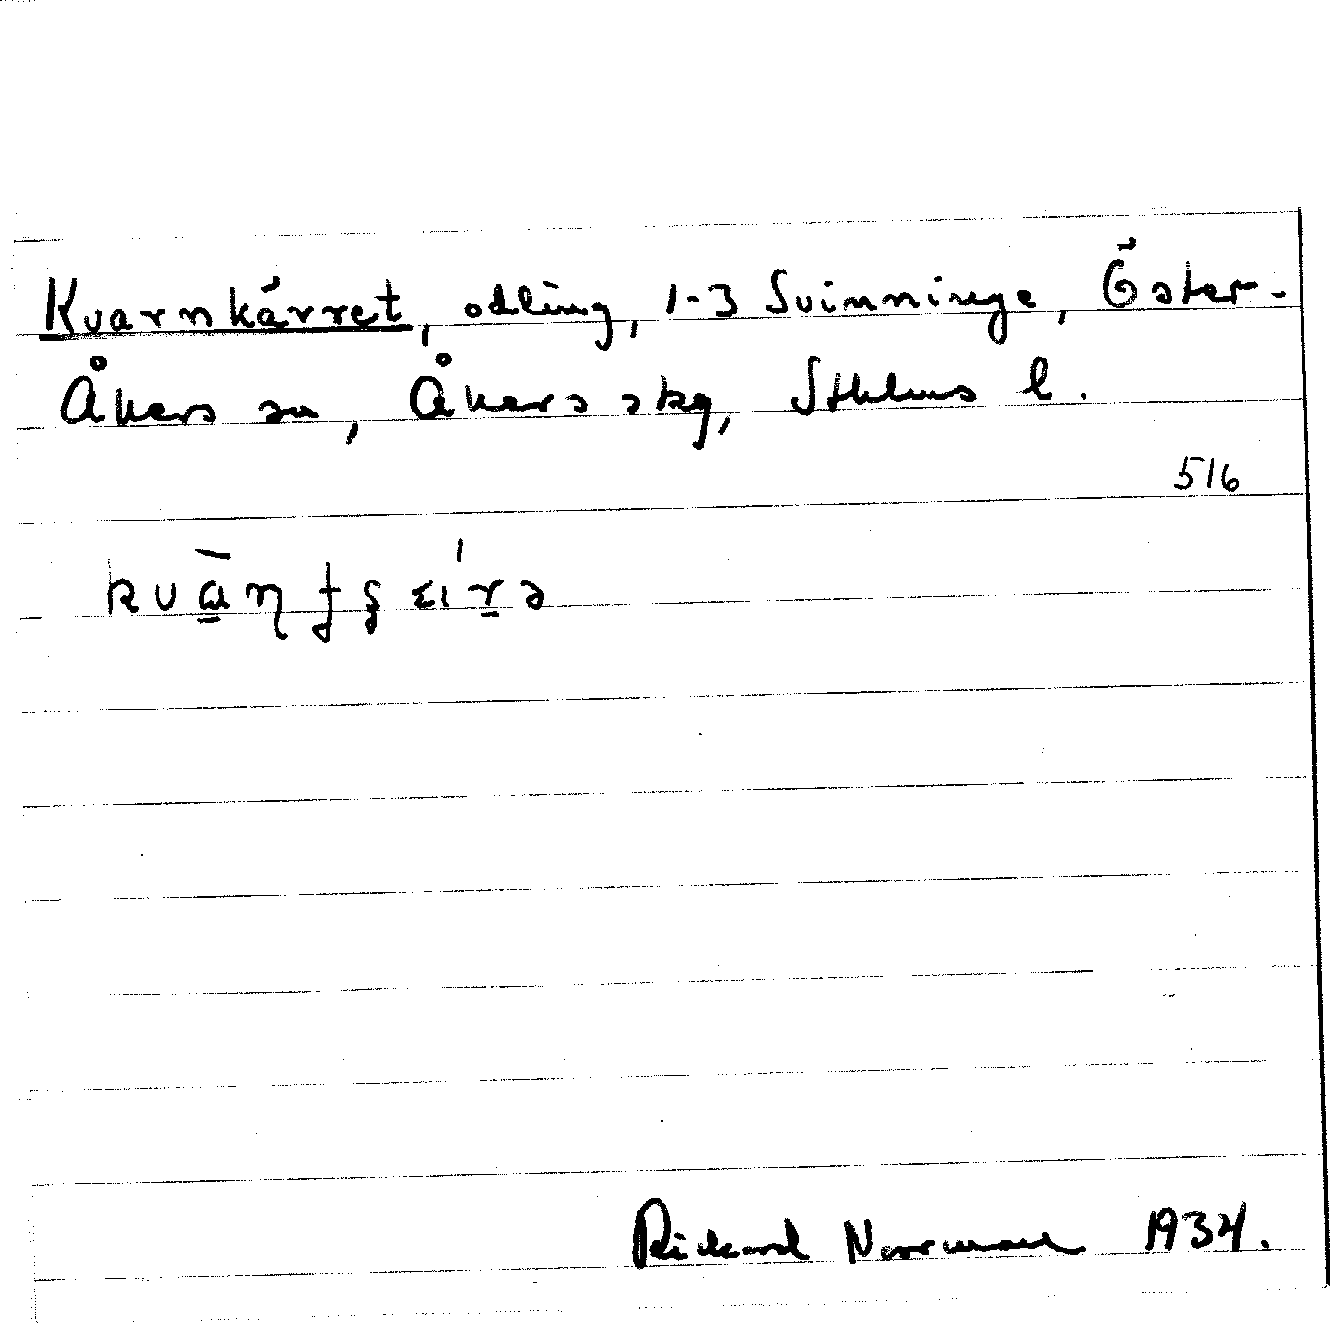 Kvarnkärret, odling, 1-3 Svinninge, Öster-
Åkers sn, Åkers skg, Sthlms l.
516
Rickard Norrman 1934.